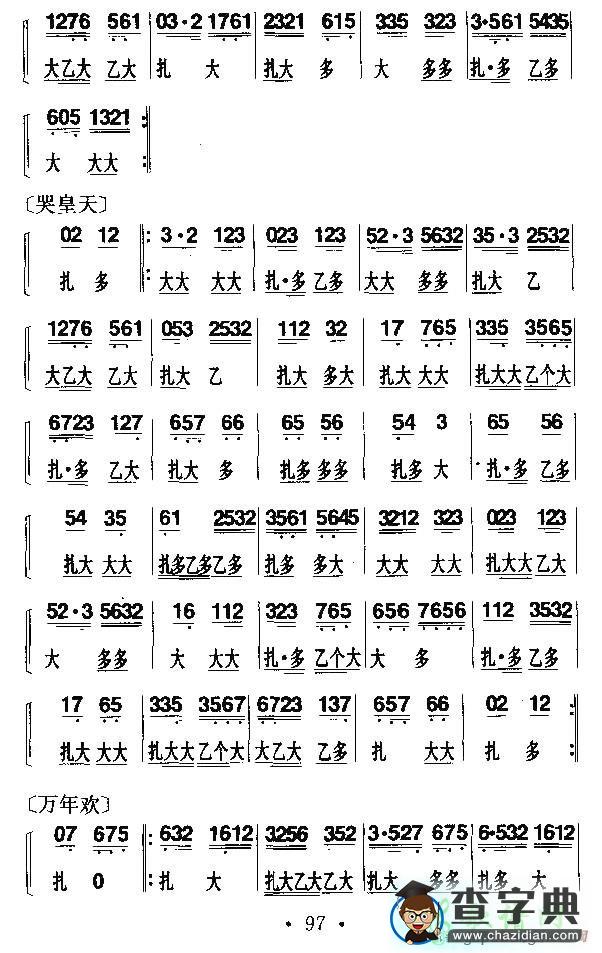 1276 561 | 03·2 1761 | 2321 615 | 335 323 | 3·561 5435
大乙大 乙大 | 扎 大 | 扎大 多 | 大 多多 | 扎·多 乙多
605 1321 :
大 大大 :
〔哭皇天〕
02 12 : 3·2 123 | 023 123 | 52·3 5632 | 35·3 2532
扎 多 : 大大 大大 | 扎·多 乙多 | 大大 多多 | 扎大 乙
1276 561 | 053 2532 | 112 32 | 17 765 | 335 3565
大乙大 乙大 | 扎大 乙 | 扎大 多大 | 扎大 大大 | 扎大大 乙个大
6723 127 | 657 66 | 65 56 | 54 3 | 65 56
扎·多 乙大 | 扎大 多 | 扎多 多多 | 扎多 大 | 扎·多 乙多
54 35 | 61 2532 | 3561 5645 | 3212 323 | 023 123
扎大 大大 | 扎多乙多乙多 | 扎多 多大 | 大大 大大 | 扎大大 乙大
52·3 5632 | 16 112 | 323 765 | 656 7656 | 112 3532
大 多多 | 大 大大 | 扎·多 乙个大 | 大 多 | 扎·多 乙多
17 65 | 335 3567 | 6723 137 | 657 66 | 02 12 :
扎大 大大 | 扎大大 乙个大 | 大乙大 乙多 | 扎 大大 | 扎 多 :
〔万年欢〕
07 675 : 632 1612 | 3256 352 | 3·527 675 | 6·532 1612
扎 0 : 扎 大 | 扎大乙大乙大 | 扎大 多多 | 扎多 大
·97·
查字典
www.chazidian.com